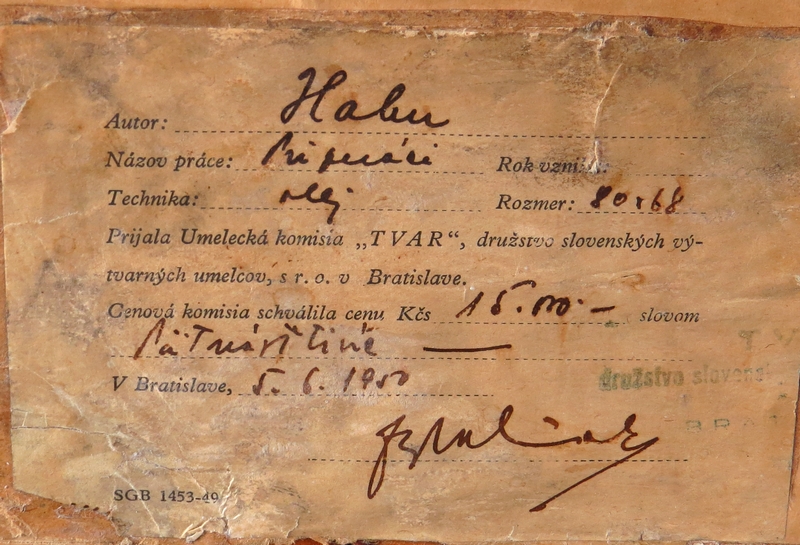 Autor: Habu
Názov práce: Pri práci Rok vzniku:
Technika: olej Rozmer: 80x68
Prijala Umelecká komisia „TVAR“, družstvo slovenských vý-
tvarných umelcov, s r. o. v Bratislave.
Cenová komisia schválila cenu Kčs 15.000.— slovom
Pätnásťtisíc —
V Bratislave, 5. 6. 1950
družstvo slovens
BRAT
SGB 1453-49